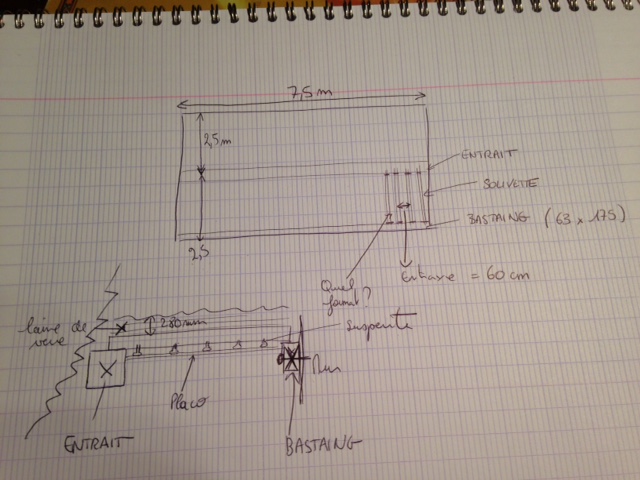 7,5 m
2,5 m
ENTRAIT
SOLIVETTE
BASTAING (63 x 175)
2,5
Quel
format ?
Entraxe = 60 cm
laine de
verre
280 mm
suspente
Mur
Placo
ENTRAIT
BASTAING